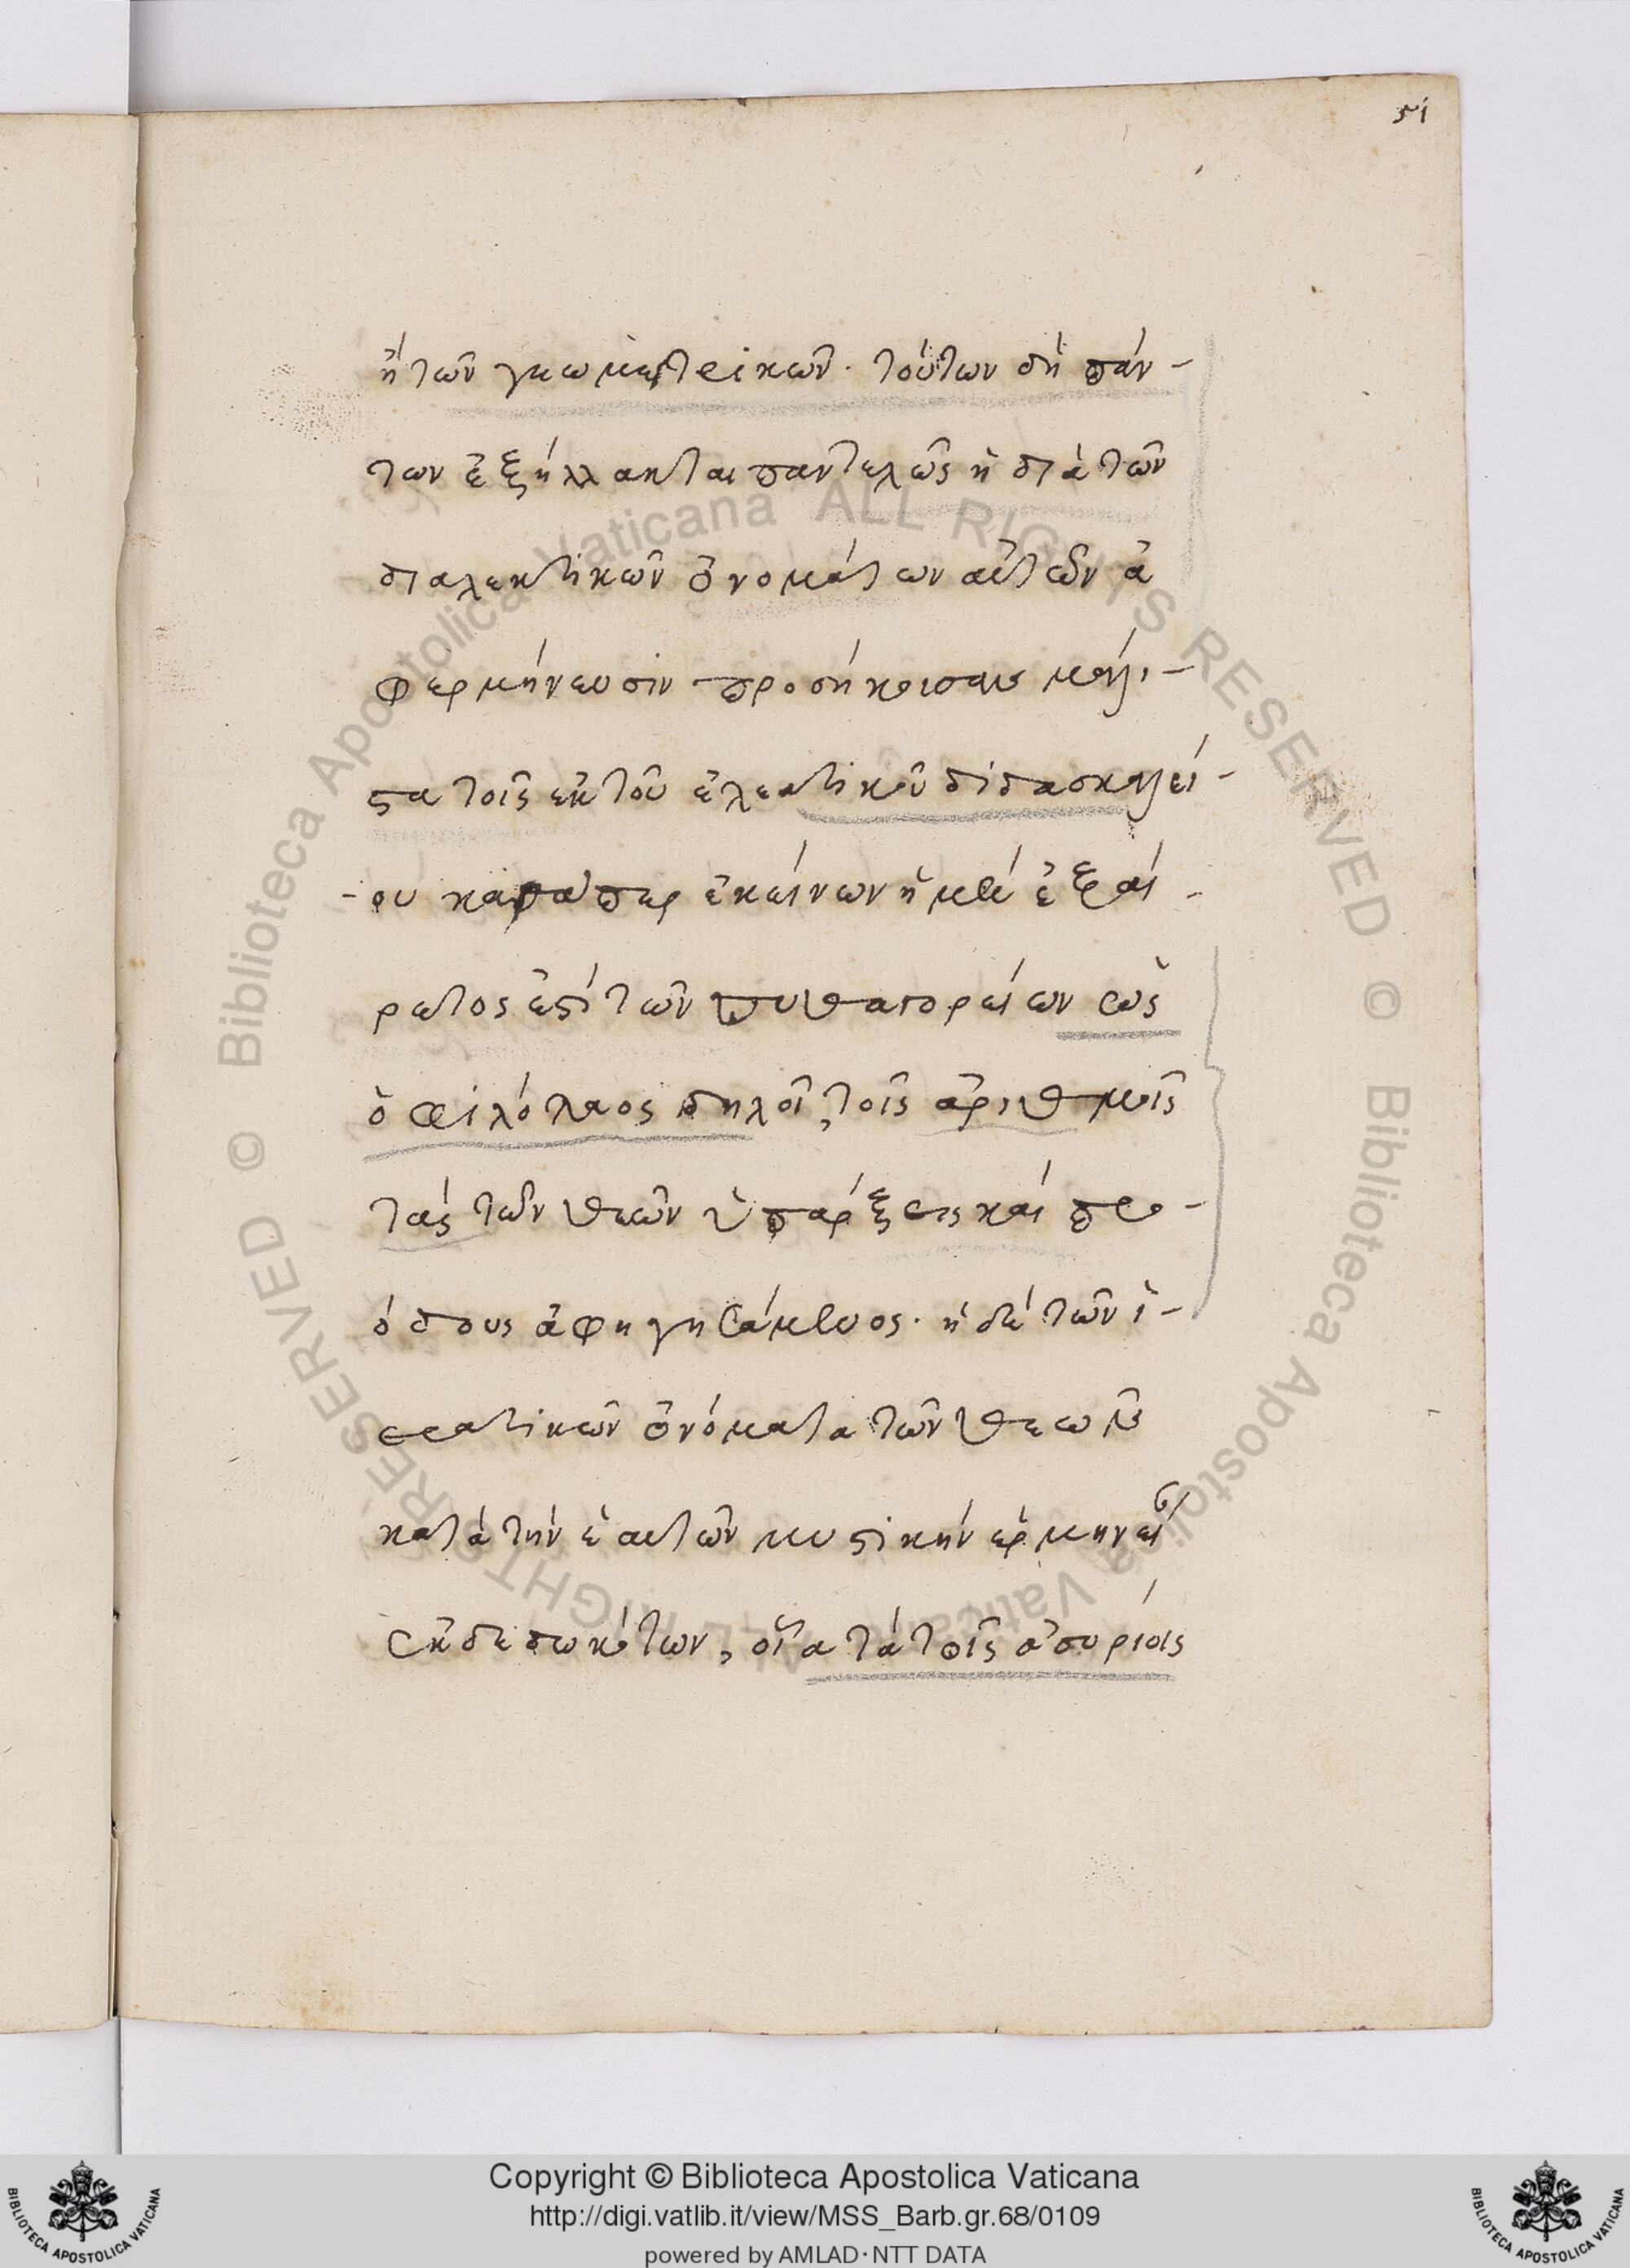 51
ἢ τῶν γεωμετρικῶν. τούτων δὴ πάν-
των ἐξήλλακται παντελῶς ἡ διὰ τῶν
διαλεκτικῶν ὀνομάτων αὐτῶν ἀ
φερμήνευσιν προσήκουσαν μάλι-
στα τοῖς ἐκ τοῦ ἐλεατικοῦ διδασκαλεί-
-ου καθάπερ ἐκείνων ἡ μὲν ἐξαί-
ρετος ἐστὶ τῶν πυθαγορείων ὡς
ὁ φιλόλαος δηλοῖ, τοῖς ἀριθμοῖς
τὰς τῶν θεῶν ὑπάρξεις καὶ προ-
όδους ἀφηγησάμενος. ἡ δὲ τῶν ἱ-
ερατικῶν ὀνόματα τῶν θεῶν
κατὰ τὴν ἑαυτῶν μυστικὴν ἑρμηνεί
ἐκδεδωκότων, οἷα τὰ τοῖς ἀσυρίοις
Copyright © Biblioteca Apostolica Vaticana
http://digi.vatlib.it/view/MSS_Barb.gr.68/0109
powered by AMLAD·NTT DATA
BIBLIOTECA APOSTOLICA VATICANA
BIBLIOTECA APOSTOLICA VATICANA
© Biblioteca Apostolica Vaticana ALL RIGHTS RESERVED © Biblioteca Apostolica Vaticana ALL RIGHTS RESERVED